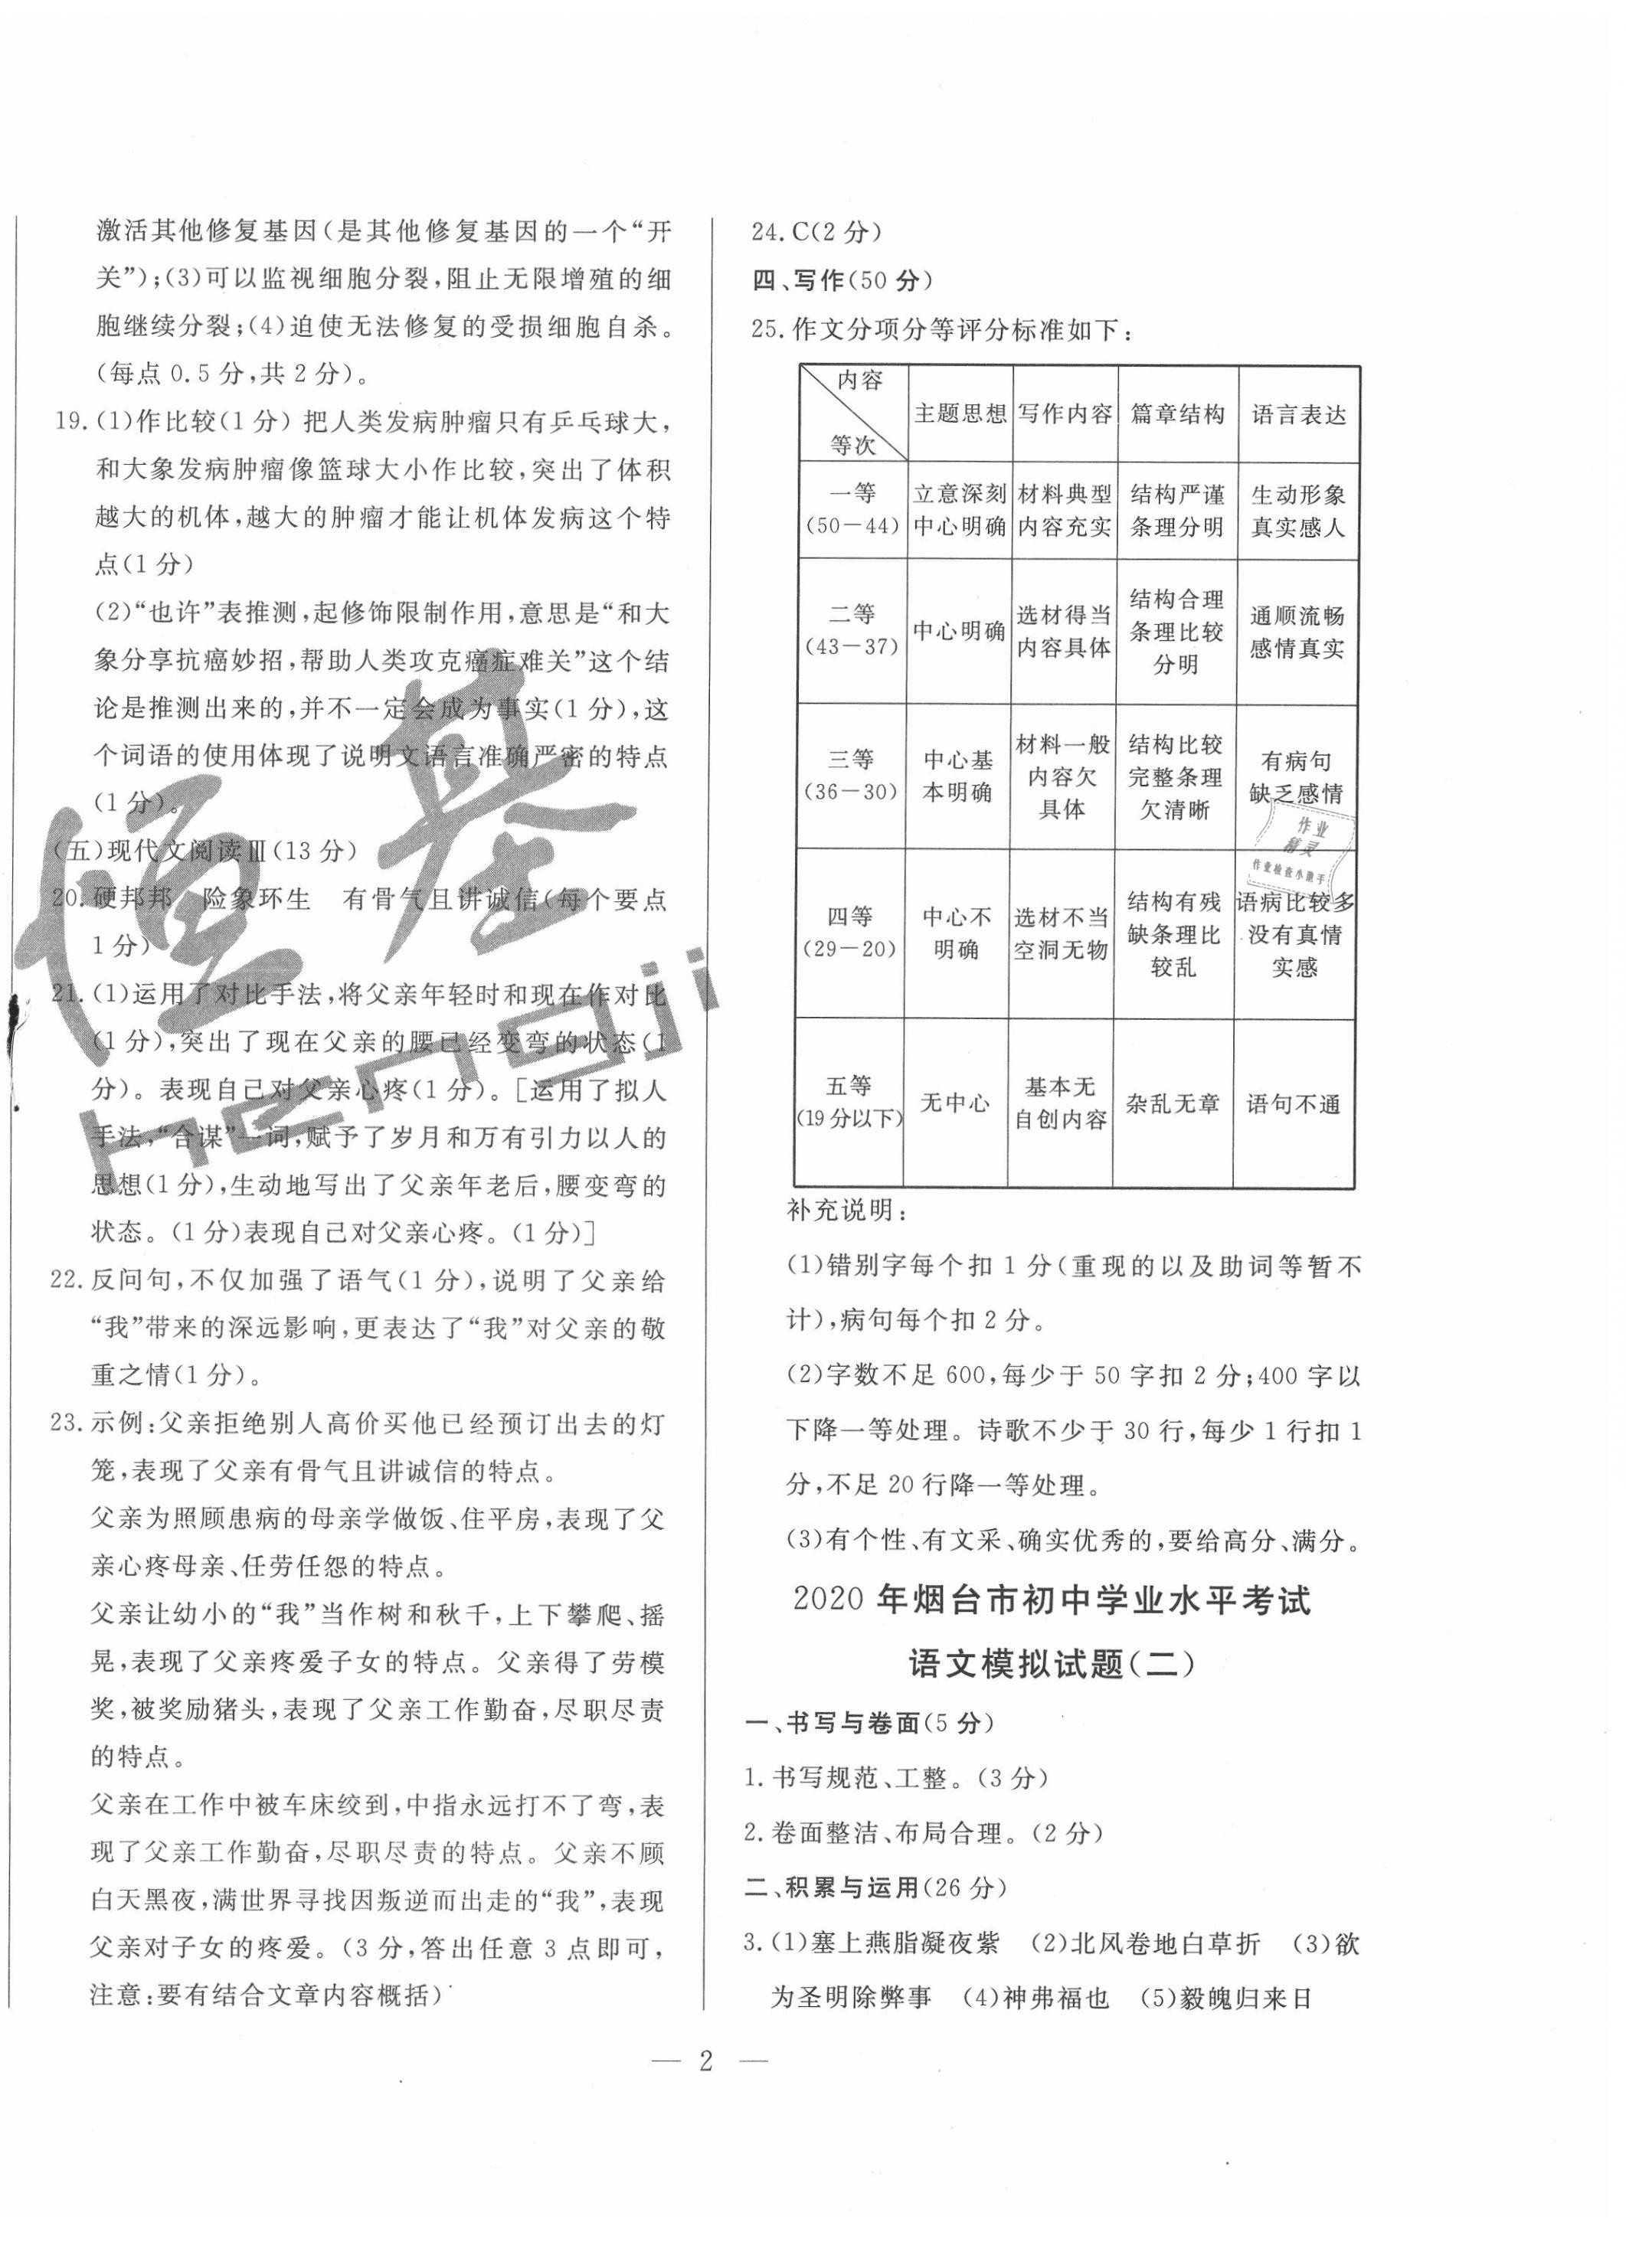 激活其他修复基因(是其他修复基因的一个“开
关”);(3)可以监视细胞分裂,阻止无限增殖的细
胞继续分裂;(4)迫使无法修复的受损细胞自杀。
(每点 0.5 分,共 2 分)。
19.(1)作比较(1 分) 把人类发病肿瘤只有乒乓球大,
和大象发病肿瘤像篮球大小作比较,突出了体积
越大的机体,越大的肿瘤才能让机体发病这个特
点(1 分)
(2)“也许”表推测,起修饰限制作用,意思是“和大
象分享抗癌妙招,帮助人类攻克癌症难关”这个结
论是推测出来的,并不一定会成为事实(1 分),这
个词语的使用体现了说明文语言准确严密的特点
(1 分)。
(五)现代文阅读Ⅲ(13 分)
20.硬邦邦　险象环生　有骨气且讲诚信(每个要点
1 分)
21.(1)运用了对比手法,将父亲年轻时和现在作对比
(1 分),突出了现在父亲的腰已经变弯的状态(1
分)。表现自己对父亲心疼(1 分)。[运用了拟人
手法,“合谋”一词,赋予了岁月和万有引力以人的
思想(1 分),生动地写出了父亲年老后,腰变弯的
状态。(1 分)表现自己对父亲心疼。(1 分)]
22.反问句,不仅加强了语气(1 分),说明了父亲给
“我”带来的深远影响,更表达了“我”对父亲的敬
重之情(1 分)。
23.示例:父亲拒绝别人高价买他已经预订出去的灯
笼,表现了父亲有骨气且讲诚信的特点。
父亲为照顾患病的母亲学做饭、住平房,表现了父
亲心疼母亲、任劳任怨的特点。
父亲让幼小的“我”当作树和秋千,上下攀爬、摇
晃,表现了父亲疼爱子女的特点。父亲得了劳模
奖,被奖励猪头,表现了父亲工作勤奋,尽职尽责
的特点。
父亲在工作中被车床绞到,中指永远打不了弯,表
现了父亲工作勤奋,尽职尽责的特点。父亲不顾
白天黑夜,满世界寻找因叛逆而出走的“我”,表现
父亲对子女的疼爱。(3 分,答出任意 3 点即可,
注意:要有结合文章内容概括)
恒基
hengji
24.C(2 分)
四、写作(50 分)
25.作文分项分等评分标准如下:
内容
等次
主题思想 写作内容 篇章结构 语言表达
一等 立意深刻 材料典型 结构严谨 生动形象
(50－44) 中心明确 内容充实 条理分明 真实感人
二等 中心明确 选材得当 结构合理 通顺流畅
(43－37) 内容具体 条理比较 感情真实
分明
三等 中心基 材料一般 结构比较 有病句
(36－30) 本明确 内容欠 完整条理 缺乏感情
具体 欠清晰
作业
精灵
作业检查小能手
四等 中心不 选材不当 结构有残 语病比较多
(29－20) 明确 空洞无物 缺条理比 没有真情
较乱 实感
五等 无中心 基本无 杂乱无章 语句不通
(19 分以下) 自创内容
补充说明:
(1)错别字每个扣 1 分(重现的以及助词等暂不
计),病句每个扣 2 分。
(2)字数不足 600,每少于 50 字扣 2 分;400 字以
下降一等处理。诗歌不少于 30 行,每少 1 行扣 1
分,不足 20 行降一等处理。
(3)有个性、有文采、确实优秀的,要给高分、满分。
2020 年烟台市初中学业水平考试
语文模拟试题(二)
一、书写与卷面(5 分)
1.书写规范、工整。(3 分)
2.卷面整洁、布局合理。(2 分)
二、积累与运用(26 分)
3.(1)塞上燕脂凝夜紫　(2)北风卷地白草折　(3)欲
为圣明除弊事　(4)神弗福也　(5)毅魄归来日
— 2 —